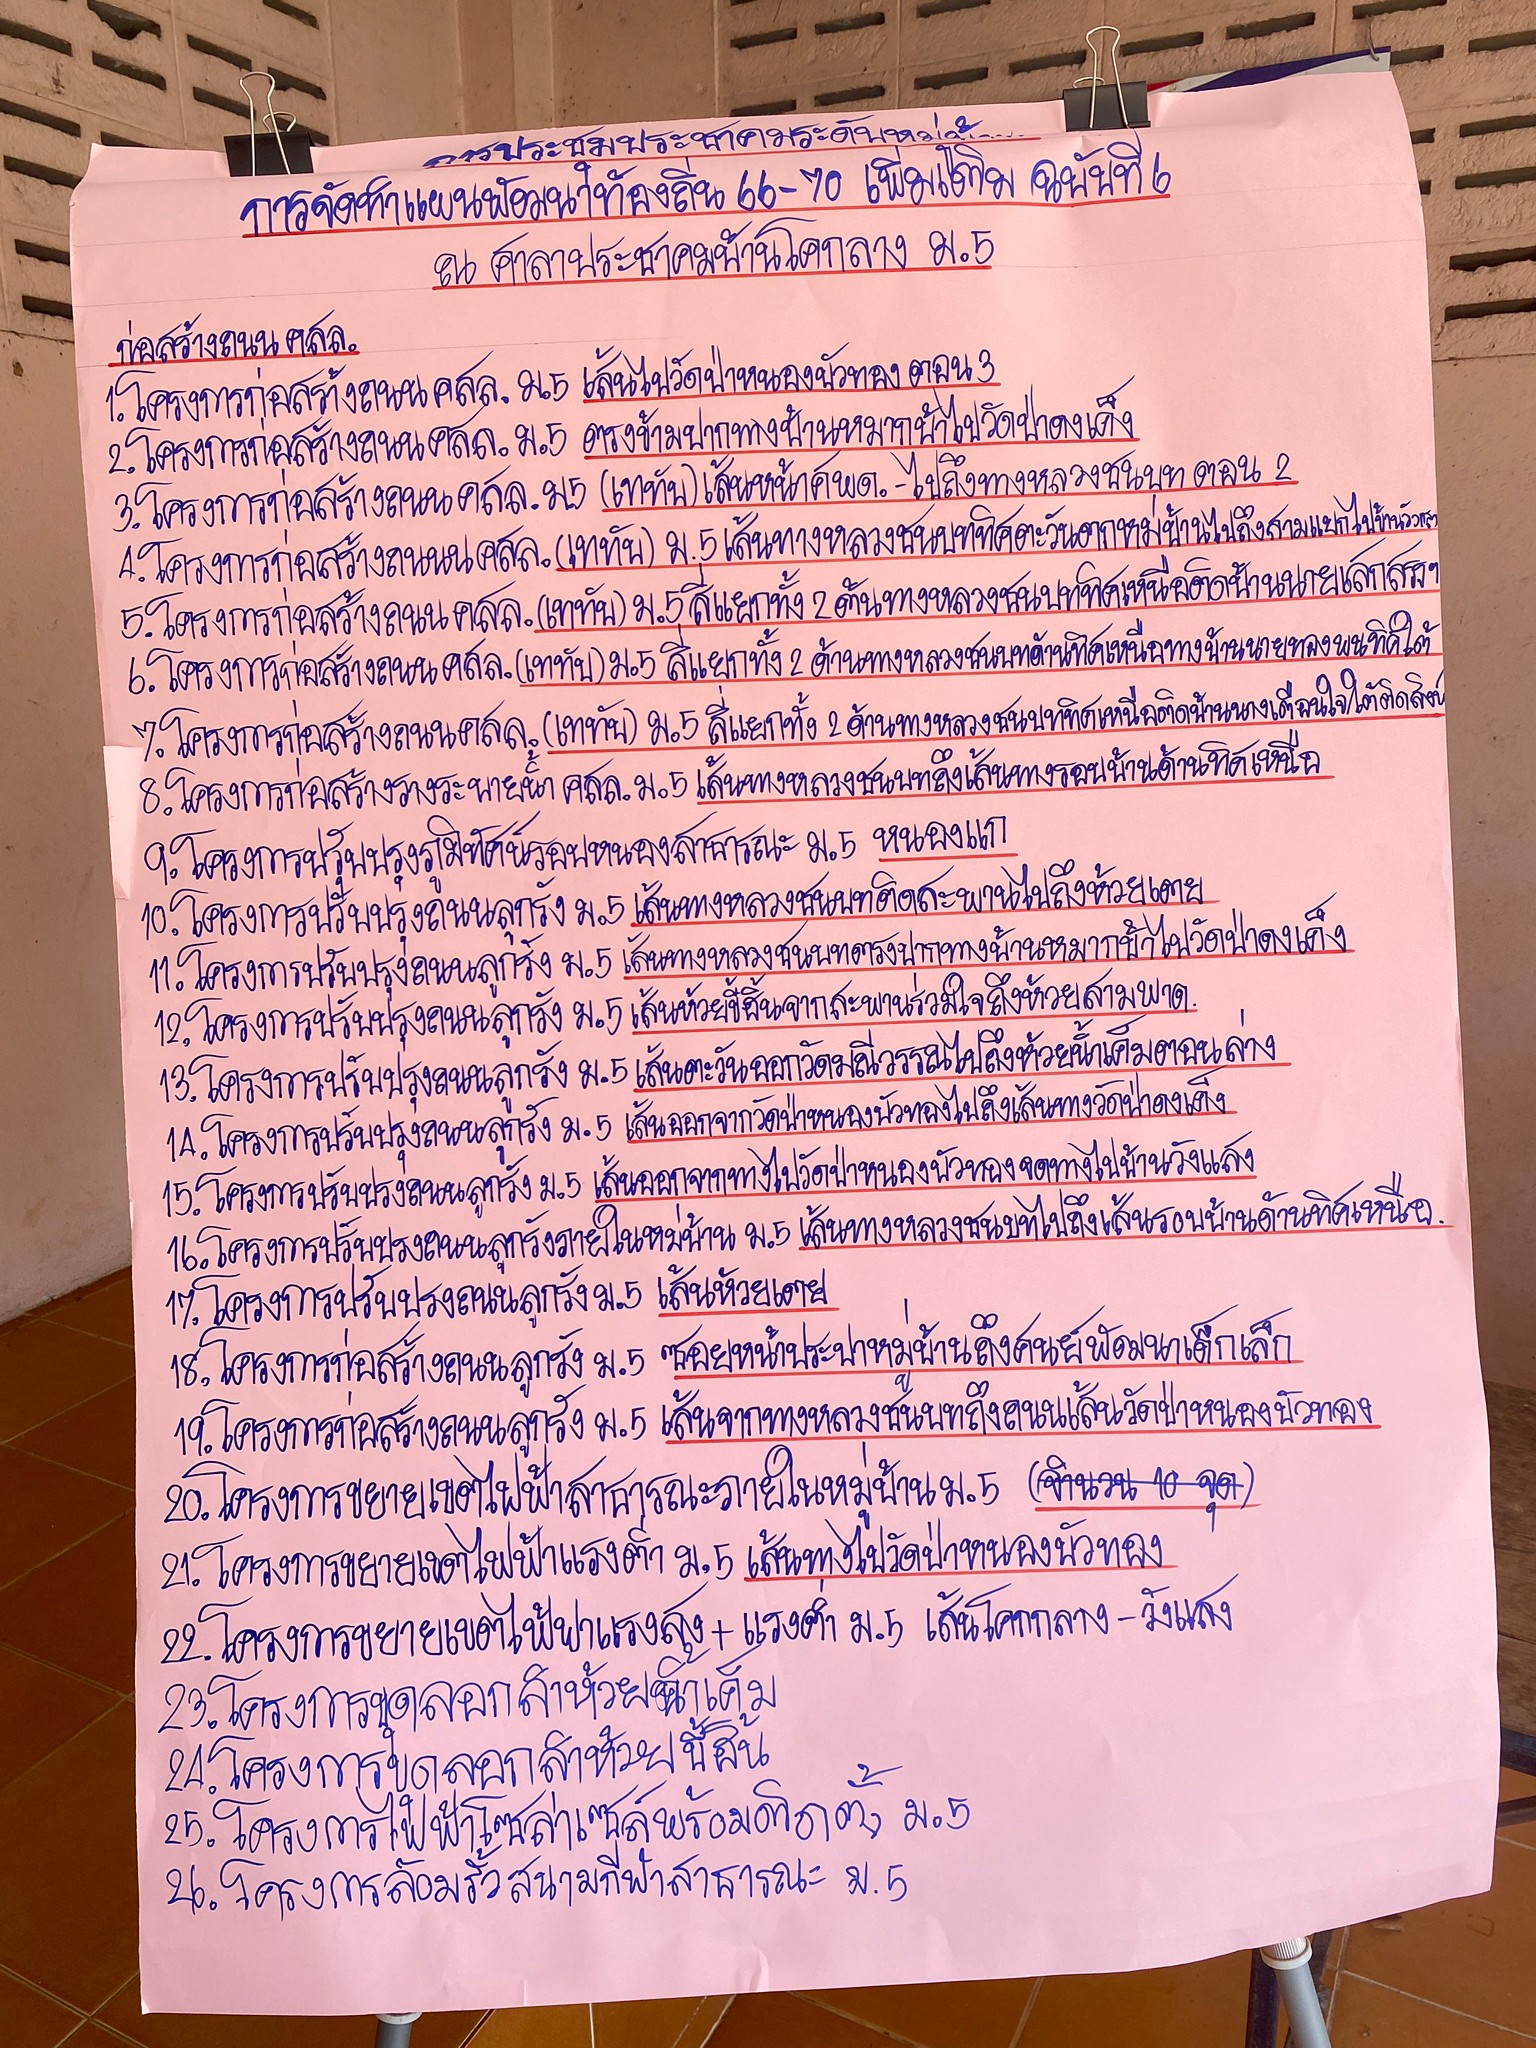 การประชุมประชาคมระดับหมู่บ้าน
การจัดทำแผนพัฒนาท้องถิ่น 66-70 เพิ่มเติม ฉบับที่ 6
ณ ศาลาประชาคมบ้านโคกลาง ม.5
ก่อสร้างถนน คสล.
1. โครงการก่อสร้างถนน คสล. ม.5 เส้นไปวัดป่าหนองบัวทอง ตอน 3
2. โครงการก่อสร้างถนน คสล. ม.5 ตรงข้ามปากทางบ้านหมากบ้าไปวัดป่าดงเค็ง
3. โครงการก่อสร้างถนน คสล. ม5 (เททับ) เส้นหน้าศพด. - ไปถึงทางหลวงชนบท ตอน 2
4. โครงการก่อสร้างถนนน คสล. (เททับ) ม.5 เส้นทางหลวงชนบททิศตะวันตกหมู่บ้านไปถึงสามแยกไปบ้าน
5. โครงการก่อสร้างถนน คสล. (เททับ) ม.5 สี่แยกทั้ง 2 ด้านทางหลวงชนบททิศเหนือติดบ้านนายเสกสรร
6. โครงการก่อสร้างถนน คสล. (เททับ) ม.5 สี่แยกทั้ง 2 ด้านทางหลวงชนบทด้านทิศเหนือทางบ้านนายทองพนทิศใต้
7. โครงการก่อสร้างถนน คสล. (เททับ) ม.5 สี่แยกทั้ง 2 ด้านทางหลวงชนบททิศเหนือติดบ้านนางเตือนใจใต้ติด
8. โครงการก่อสร้างรางระบายน้ำ คสล. ม.5 เส้นทางหลวงชนบทถึงเส้นทางรอบบ้านด้านทิศเหนือ
9. โครงการปรับปรุงภูมิทัศน์รอบหนองสาธารณะ ม.5 หนองแก
10. โครงการปรับปรุงถนนลูกรัง ม.5 เส้นทางหลวงชนบทติดสะพานไปถึงห้วยเตย
11. โครงการปรับปรุงถนนลูกรัง ม.5 เส้นทางหลวงชนบทตรงปากทางบ้านหมากบ้าไปวัดป่าดงเค็ง
12. โครงการปรับปรุงถนนลูกรัง ม.5 เส้นห้วยขี้ฮิ้นจากสะพานร่วมใจถึงห้วยสามพาด.
13. โครงการปรับปรุงถนนลูกรัง ม.5 เส้นตะวันออกวัดมณีวรรณไปถึงห้วยน้ำเค็มตอนล่าง
14. โครงการปรับปรุงถนนลูกรัง ม.5 เส้นออกจากวัดป่าหนองบัวทองไปถึงเส้นทางวัดป่าดงเค็ง
15. โครงการปรับปรุงถนนลูกรัง ม.5 เส้นออกจากทางไปวัดป่าหนองบัวทองจดทางไปบ้านวังแสง
16. โครงการปรับปรุงถนนลูกรังภายในหมู่บ้าน ม.5 เส้นทางหลวงชนบทไปถึงเส้นรอบบ้านด้านทิศเหนือ.
17. โครงการปรับปรุงถนนลูกรัง ม.5 เส้นห้วยเตย
18. โครงการก่อสร้างถนนลูกรัง ม.5 ซอยหน้าประปาหมู่บ้านถึงศูนย์พัฒนาเด็กเล็ก
19. โครงการก่อสร้างถนนลูกรัง ม.5 เส้นจากทางหลวงชนบทถึงถนนเส้นวัดป่าหนองบัวทอง
20. โครงการขยายเขตไฟฟ้าสาธารณะภายในหมู่บ้าน ม.5 (จำนวน 10 จุด)
21. โครงการขยายเขตไฟฟ้าแรงต่ำ ม.5 เส้นทางไปวัดป่าหนองบัวทอง
22. โครงการขยายเขตไฟฟ้าแรงสูง + แรงต่ำ ม.5 เส้นโคกกลาง - วังแสง
23. โครงการขุดลอกลำห้วยน้ำเค็ม
24. โครงการขุดลอกลำห้วยขี้ฮิ้น
25. โครงการไฟฟ้าโซล่าเซลล์พร้อมติดตั้ง ม.5
26. โครงการล้อมรั้วสนามกีฬาสาธารณะ ม.5